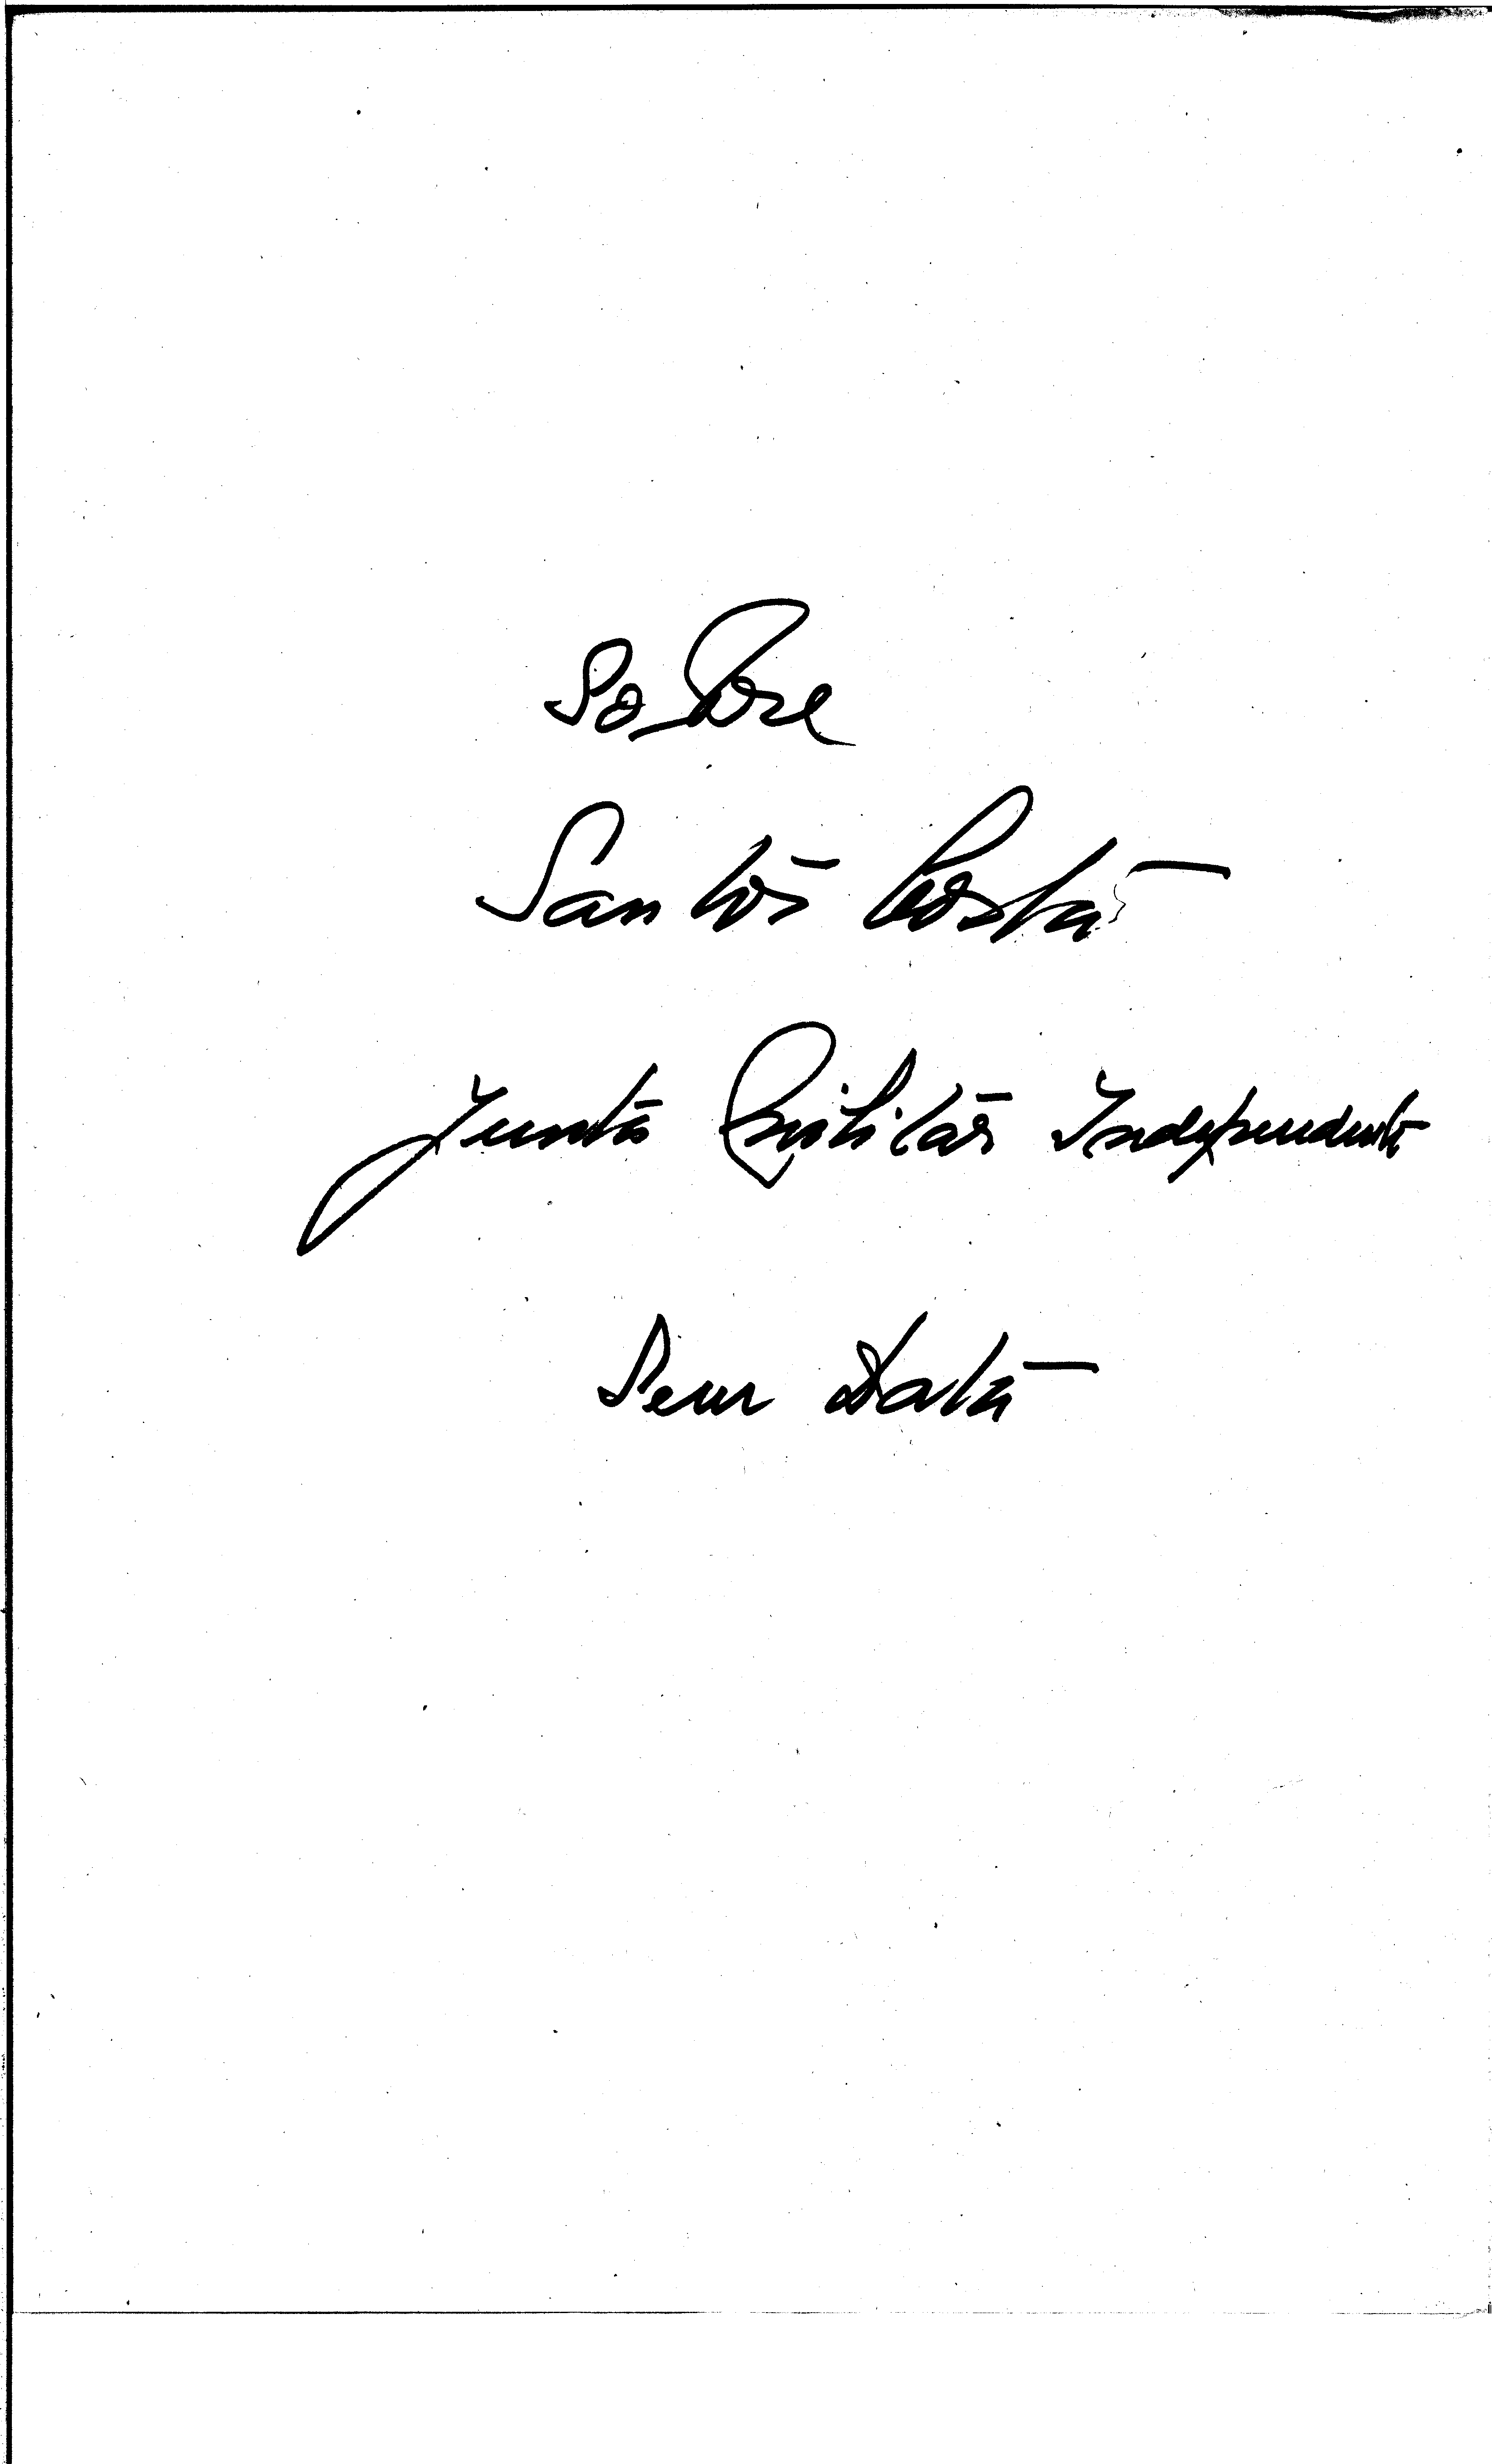 Sobre
Santos Costa
Junta Militar Independente
Sem Data